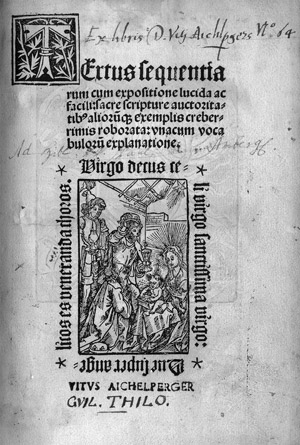 Ex libris D. Viti Aichlpgers N° 64
Textus sequentia
rum cum expositione lucida ac
facili: sacre scripture auctorita-
tibꝰ aliorūqꝫ exemplis creber-
rimis roborata: vnacum voca
bulorum explanatione.
Ad
Virgo decus ce-
li virgo sanctissima virgo:
Que super ange-
licos es veneranda thoros.
VITVS AICHELPERGER
GVIL. THILO.